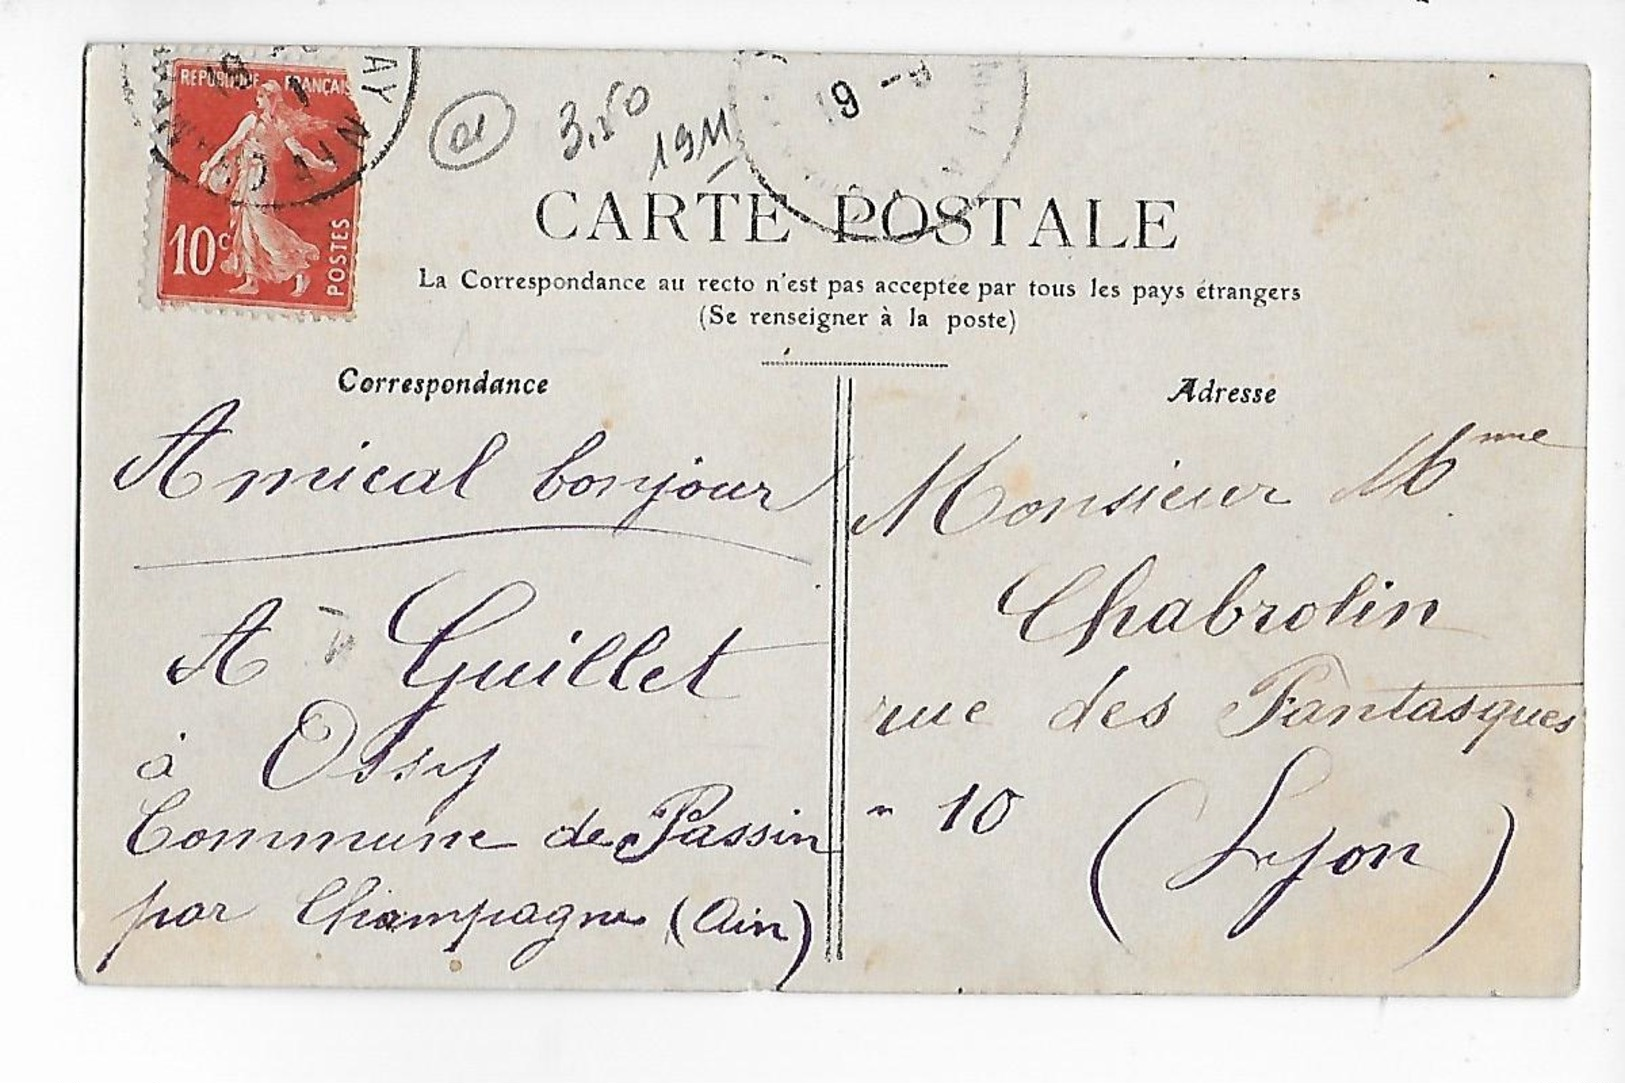 REPUBLIQUE FRANÇAISE
10c
POSTES
01
3.50
1911
19
CARTE POSTALE
La Correspondance au recto n'est pas acceptée par tous les pays étrangers
(Se renseigner à la poste)
Correspondance
Amical bonjour
A Guillet
à Ossy
Commune de Passin
par Champagne (Ain)
Adresse
Monsieur Mme
Chabrolin
rue des Fantasques
- 10
(Lyon)